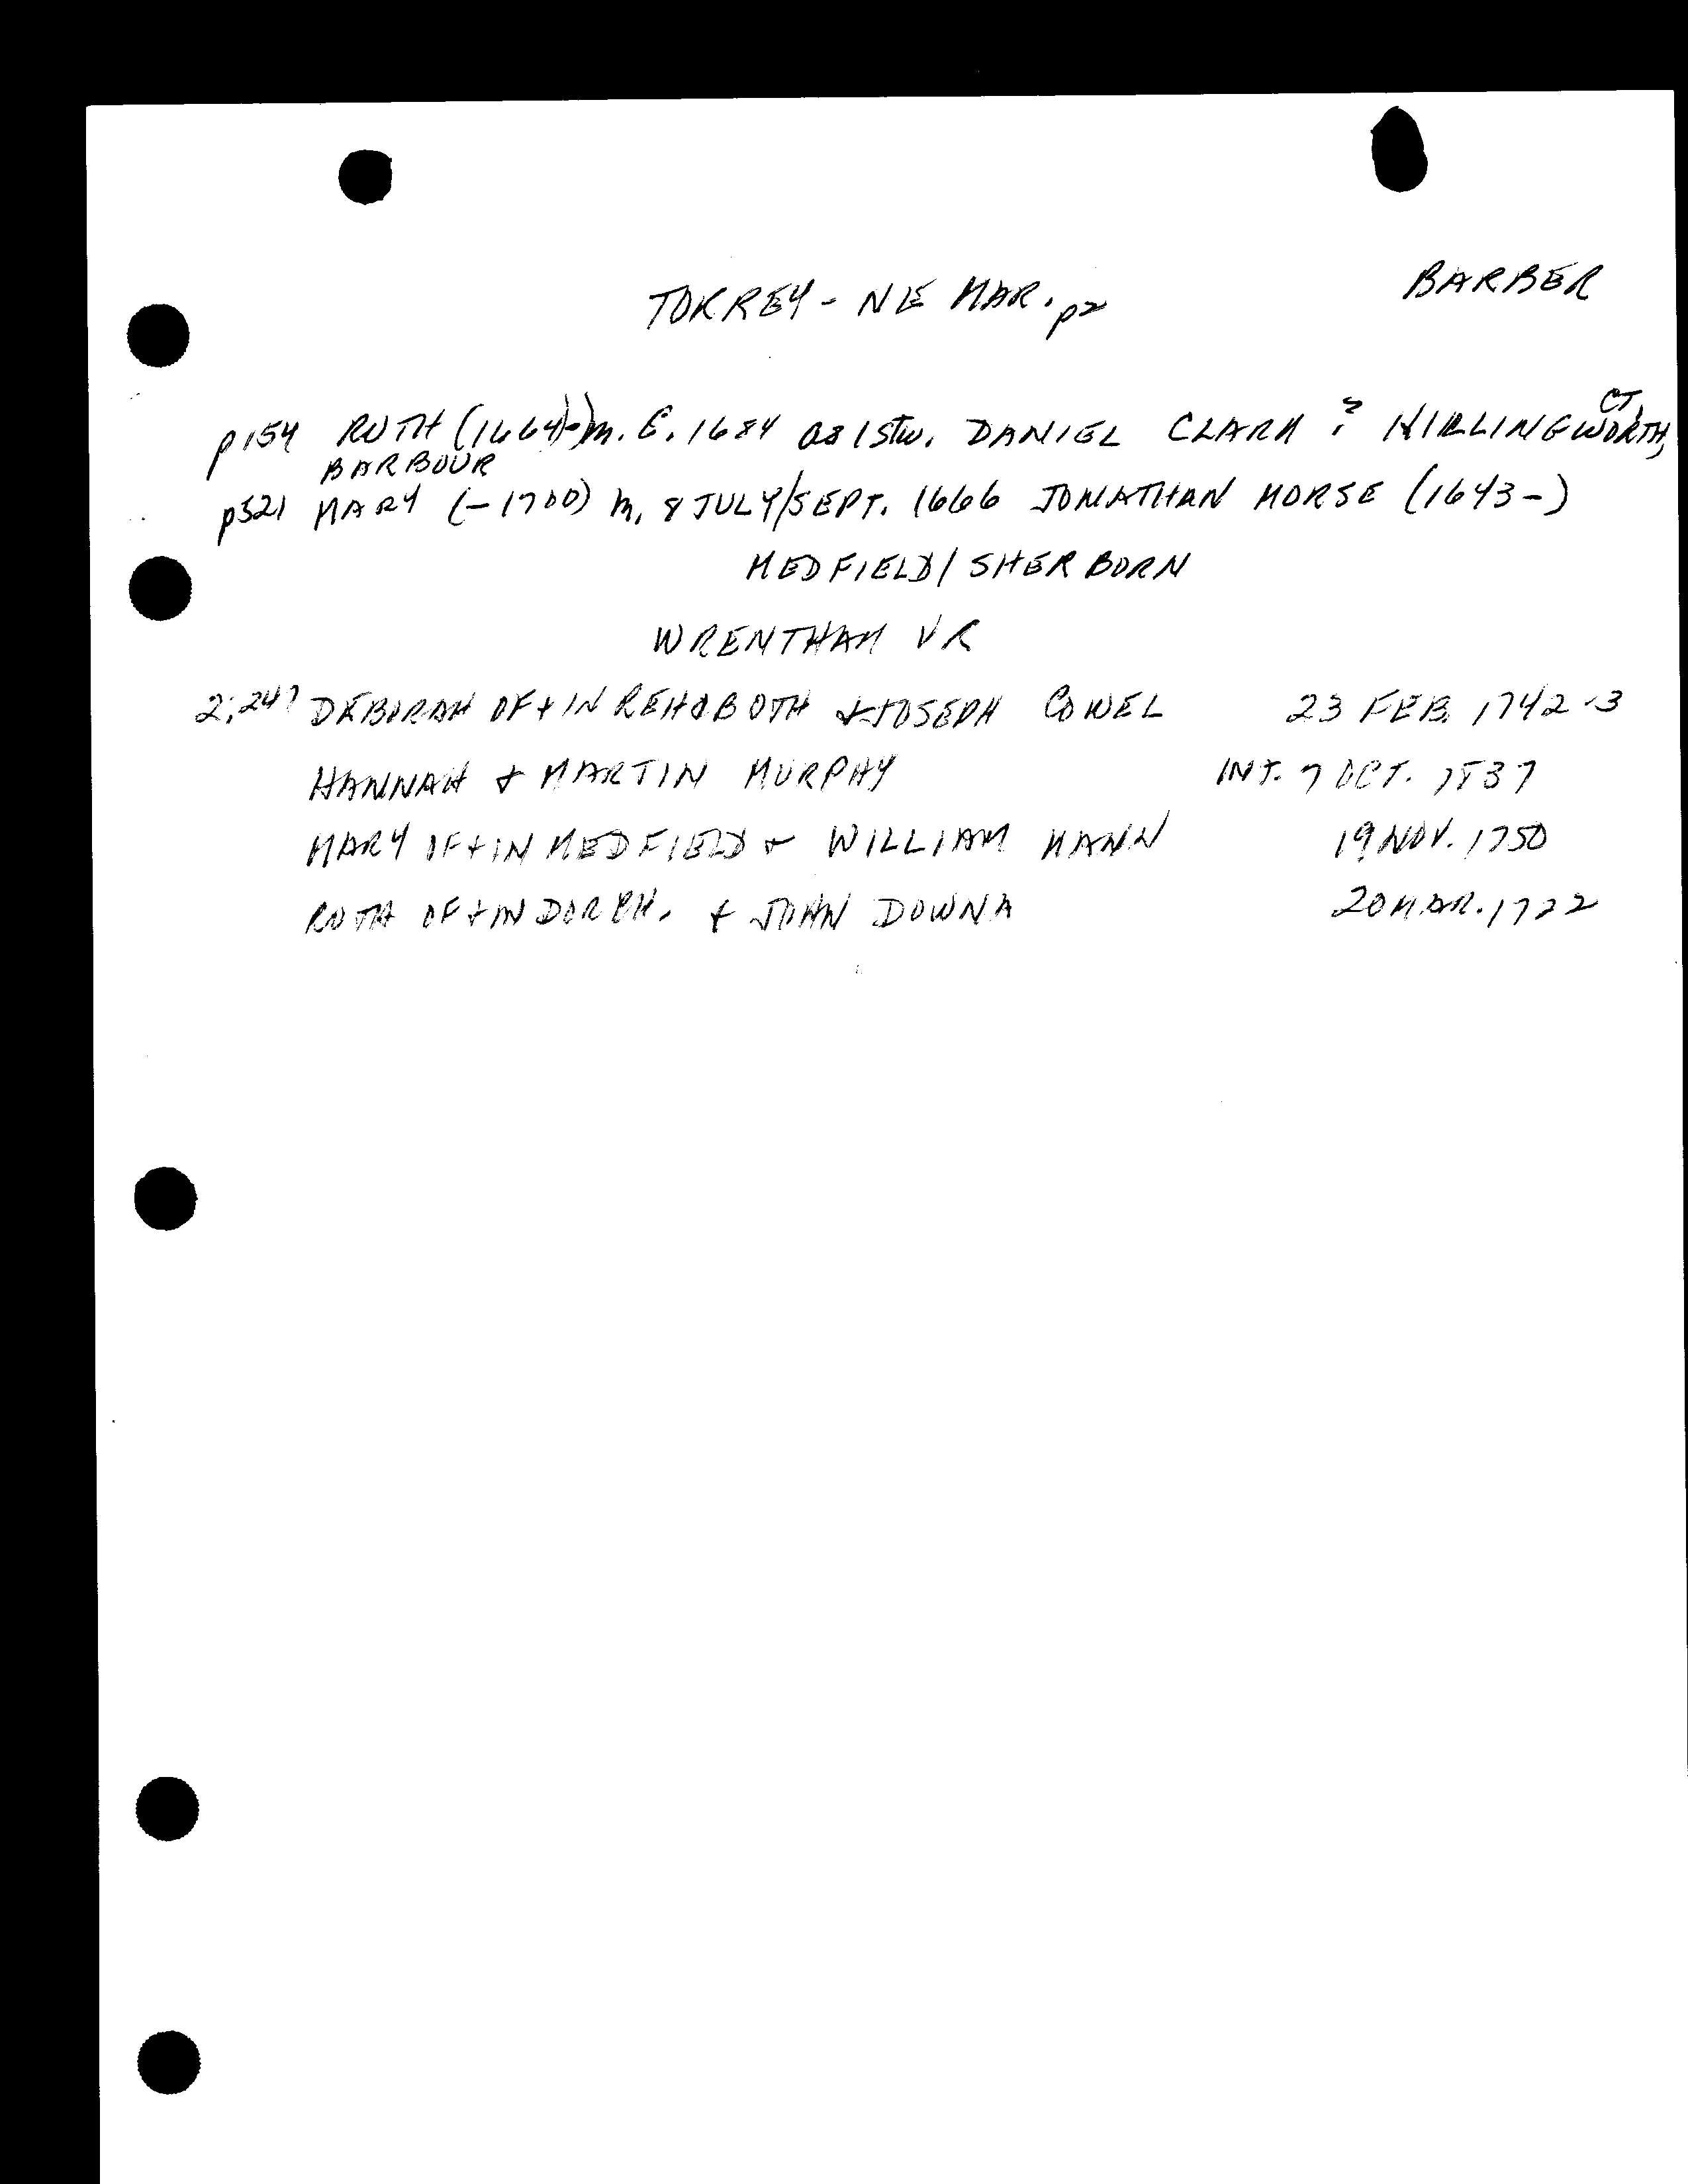 BARBER
TORREY - NE MAR. p2
p154 RUTH (1664-) m. C. 1684 as 1st w. DANIEL CLARK ? KILLINGWORTH, CT.
BARBOUR
p521 MARY (-1700) m. 8 JULY/SEPT. 1666 JONATHAN MORSE (1643-)
MEDFIELD/SHERBORN
WRENTHAM VR
2:247 DEBORAH OF + IN REHOBOTH & JOSEPH COWEL 23 FEB. 1742-3
HANNAH & MARTIN MURPHY INT. 7 OCT. 1837
MARY OF + IN MEDFIELD & WILLIAM MANN 19 NOV. 1750
RUTH OF + IN DORCH. & JOHN DOWNA 20 MAR. 1722